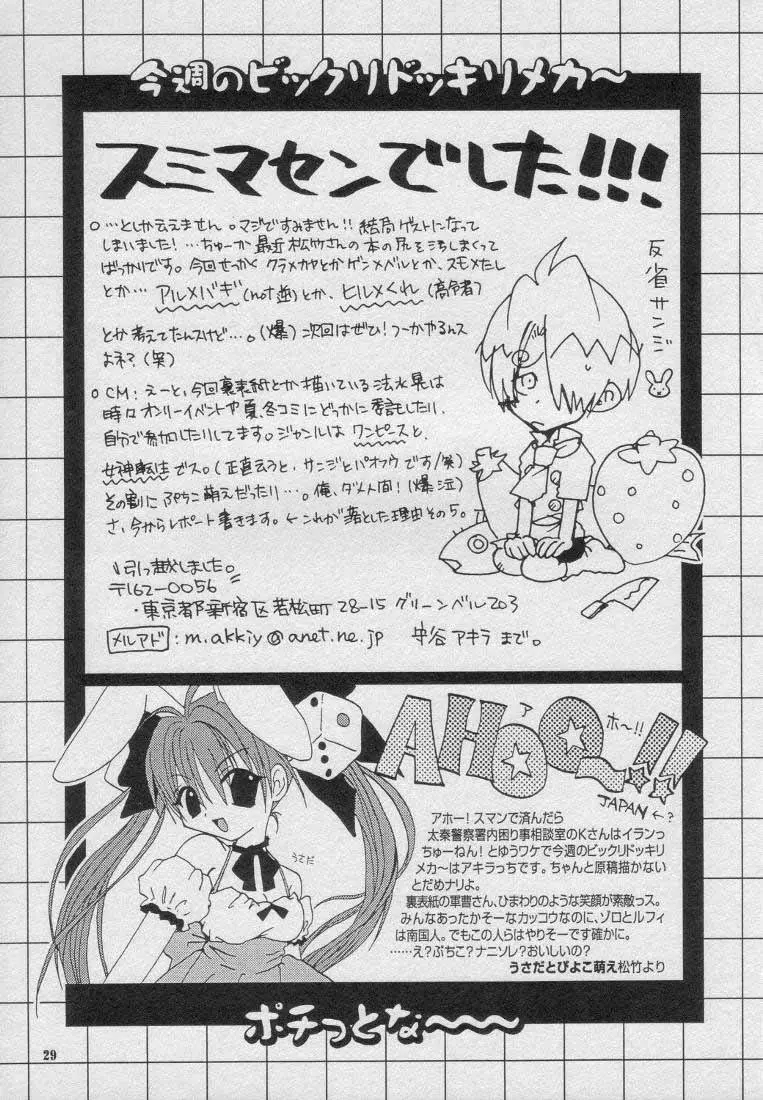 今週のビックリドッキリメカ〜
スミマセンでした!!!
○…としか云えません。マジですみません!! 結局ゲストになって
しまいました!…ちゅーか最近松竹さんの本の尻を汚しまくって
ばっかりです。今回せっかくクラメカヤとかゲンメベルとか、スモメたし
とか…アルメバギ(not逆)とか、ヒルメくれ(高令者)
とか考えてたんスけど…。(爆) 次回はぜひ! つーかやるんス
よネ?(笑)
反省サンジ
○CM:えーと、今回裏表紙とか描いている法水晃は
時々オンリーイベントや夏、冬コミにどっかに委託したり、
自分で参加したりしてます。ジャンルはワンピースと、
女神転生でス。(正直云うと、サンジとパオフウです/笑)
その割にぷちこ萌えだったり…。俺、ダメ人間!(爆泣)
さ、今からレポート書きます。←これが落とした理由その5。
引っ越しました。
〒162-0056
・東京都新宿区若松町28-15 グリーンベル203
メルアド:m.akkiy@anet.ne.jp 中谷アキラまで。
AHOO〜!!
ア
ホ〜!!
JAPAN←?
うさだ
アホー!スマンで済んだら
太秦警察署内困り事相談室のKさんはイランっ
ちゅーねん!とゆうワケで今週のビックリドッキリ
メカ〜はアキラっちです。ちゃんと原稿描かない
とだめナリよ。
裏表紙の軍曹さん、ひまわりのような笑顔が素敵っス。
みんなあったかそーなカッコウなのに、ゾロとルフィ
は南国人。でもこの人らはやりそーです確かに。
……え?ぷちこ?ナニソレ?おいしいの?
うさだとぴよこ萌え松竹より
ポチっとな〜〜〜
29